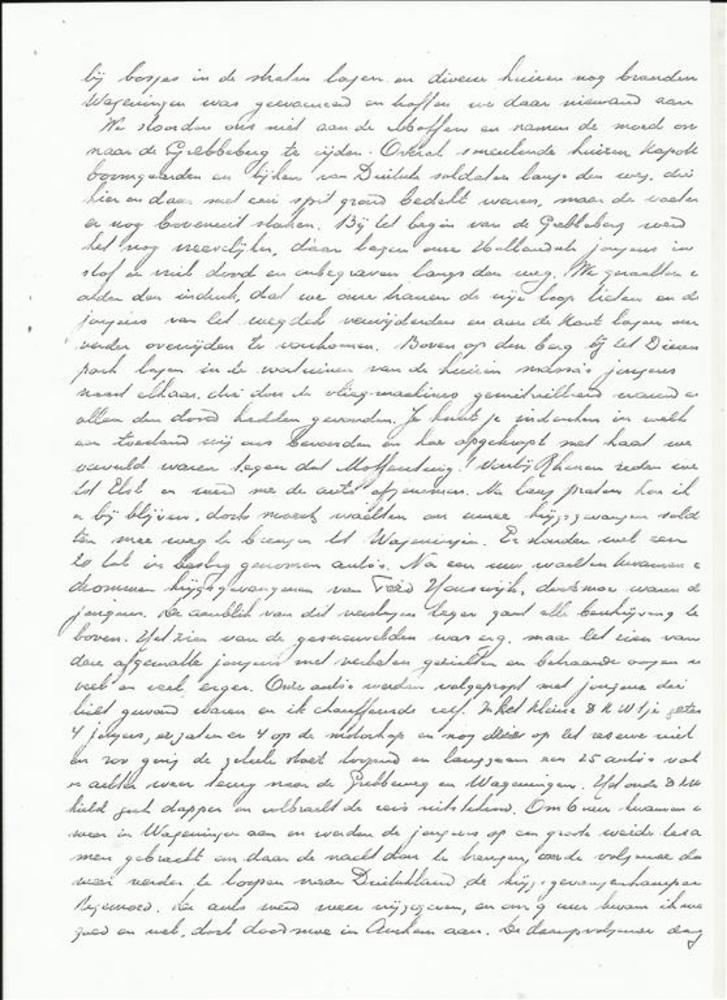 bij bosjes in de straten lagen en diverse huizen nog branden
Wageningen was geevacueerd en troffen we daar niemand aan
We stoorden ons niet aan de Moffen en namen de moed om
naar de Grebbeberg te rijden. Overal smeulende huizen kapotte
boomgaarden en lijken van Duitsche soldaten langs den weg, die
hier en daar met een spit grond bedekt waren, maar de voeten
er nog bovenuit staken. Bij het begin van de Grebbeberg werd
het nog vreeselijker, daar lagen onze Hollandsche jongens in
stof en vuil dood en onbegraven langs den weg. We
den indruk, dat we onze tranen de vrije loop lieten en de
jongens van het wegdek verwijderden en aan de kant lagen om
verder overrijden te voorkomen. Boven op den berg bij het Dieren
park lagen in de van de huizen massa's jongens
naast elkaar, die door de vliegmachines gemitrailleerd waren en
allen den dood hadden gevonden. Je kunt je indenken in welk
een toestand wij ons bevonden en hoe opgekropt met haat we
vervuld waren tegen dat Moffentuig! Voorbij Rhenen reden we
tot Elst en werd me de auto afgenomen. Na lang praten kon ik
er bij blijven, doch moest wachten om onze krijgsgevangen sold
ten mee weg te brengen tot Wageningen. Er stonden wel een
20 tal in beslag genomen auto's. Na een uur wachten kwamen e
drommen krijgsgevangenen van Honswijk, doodmoe waren de
jongens. De aanblik van dit verslagen leger gaat alle beschrijving te
boven. Het zien van de gesneuvelden was erg, maar het zien van
deze afgematte jongens met verbeten gezichten en betraande oogen is
veel en veel erger. Onze auto's werden volgepropt met jongens die
licht gewond waren en ik chauffeurde zelf. In het kleine D K W tje zaten
4 jongens, er zaten er 4 op de motorkap en nog op het reserve wiel
en zoo ging de geheele stoet loopend en langzaam een 25 auto's vol
er achter weer terug naar de Grebbeweg en Wageningen. Het oude DKW
hield zich dapper en volbracht de reis uitstekend. Om 6 uur kwamen e
weer in Wageningen aan en werden de jongens op een groote weide tesa
men gebracht om daar de nacht door te brengen, om de volgende da
weer verder te loopen naar Duitschland de krijgsgevangenkampen
tegemoed. De auto werd weer vrijgegeven, en om 9 uur kwam ik we
goed en wel, doch doodmoe in Arnhem aan. De daaropvolgende dag